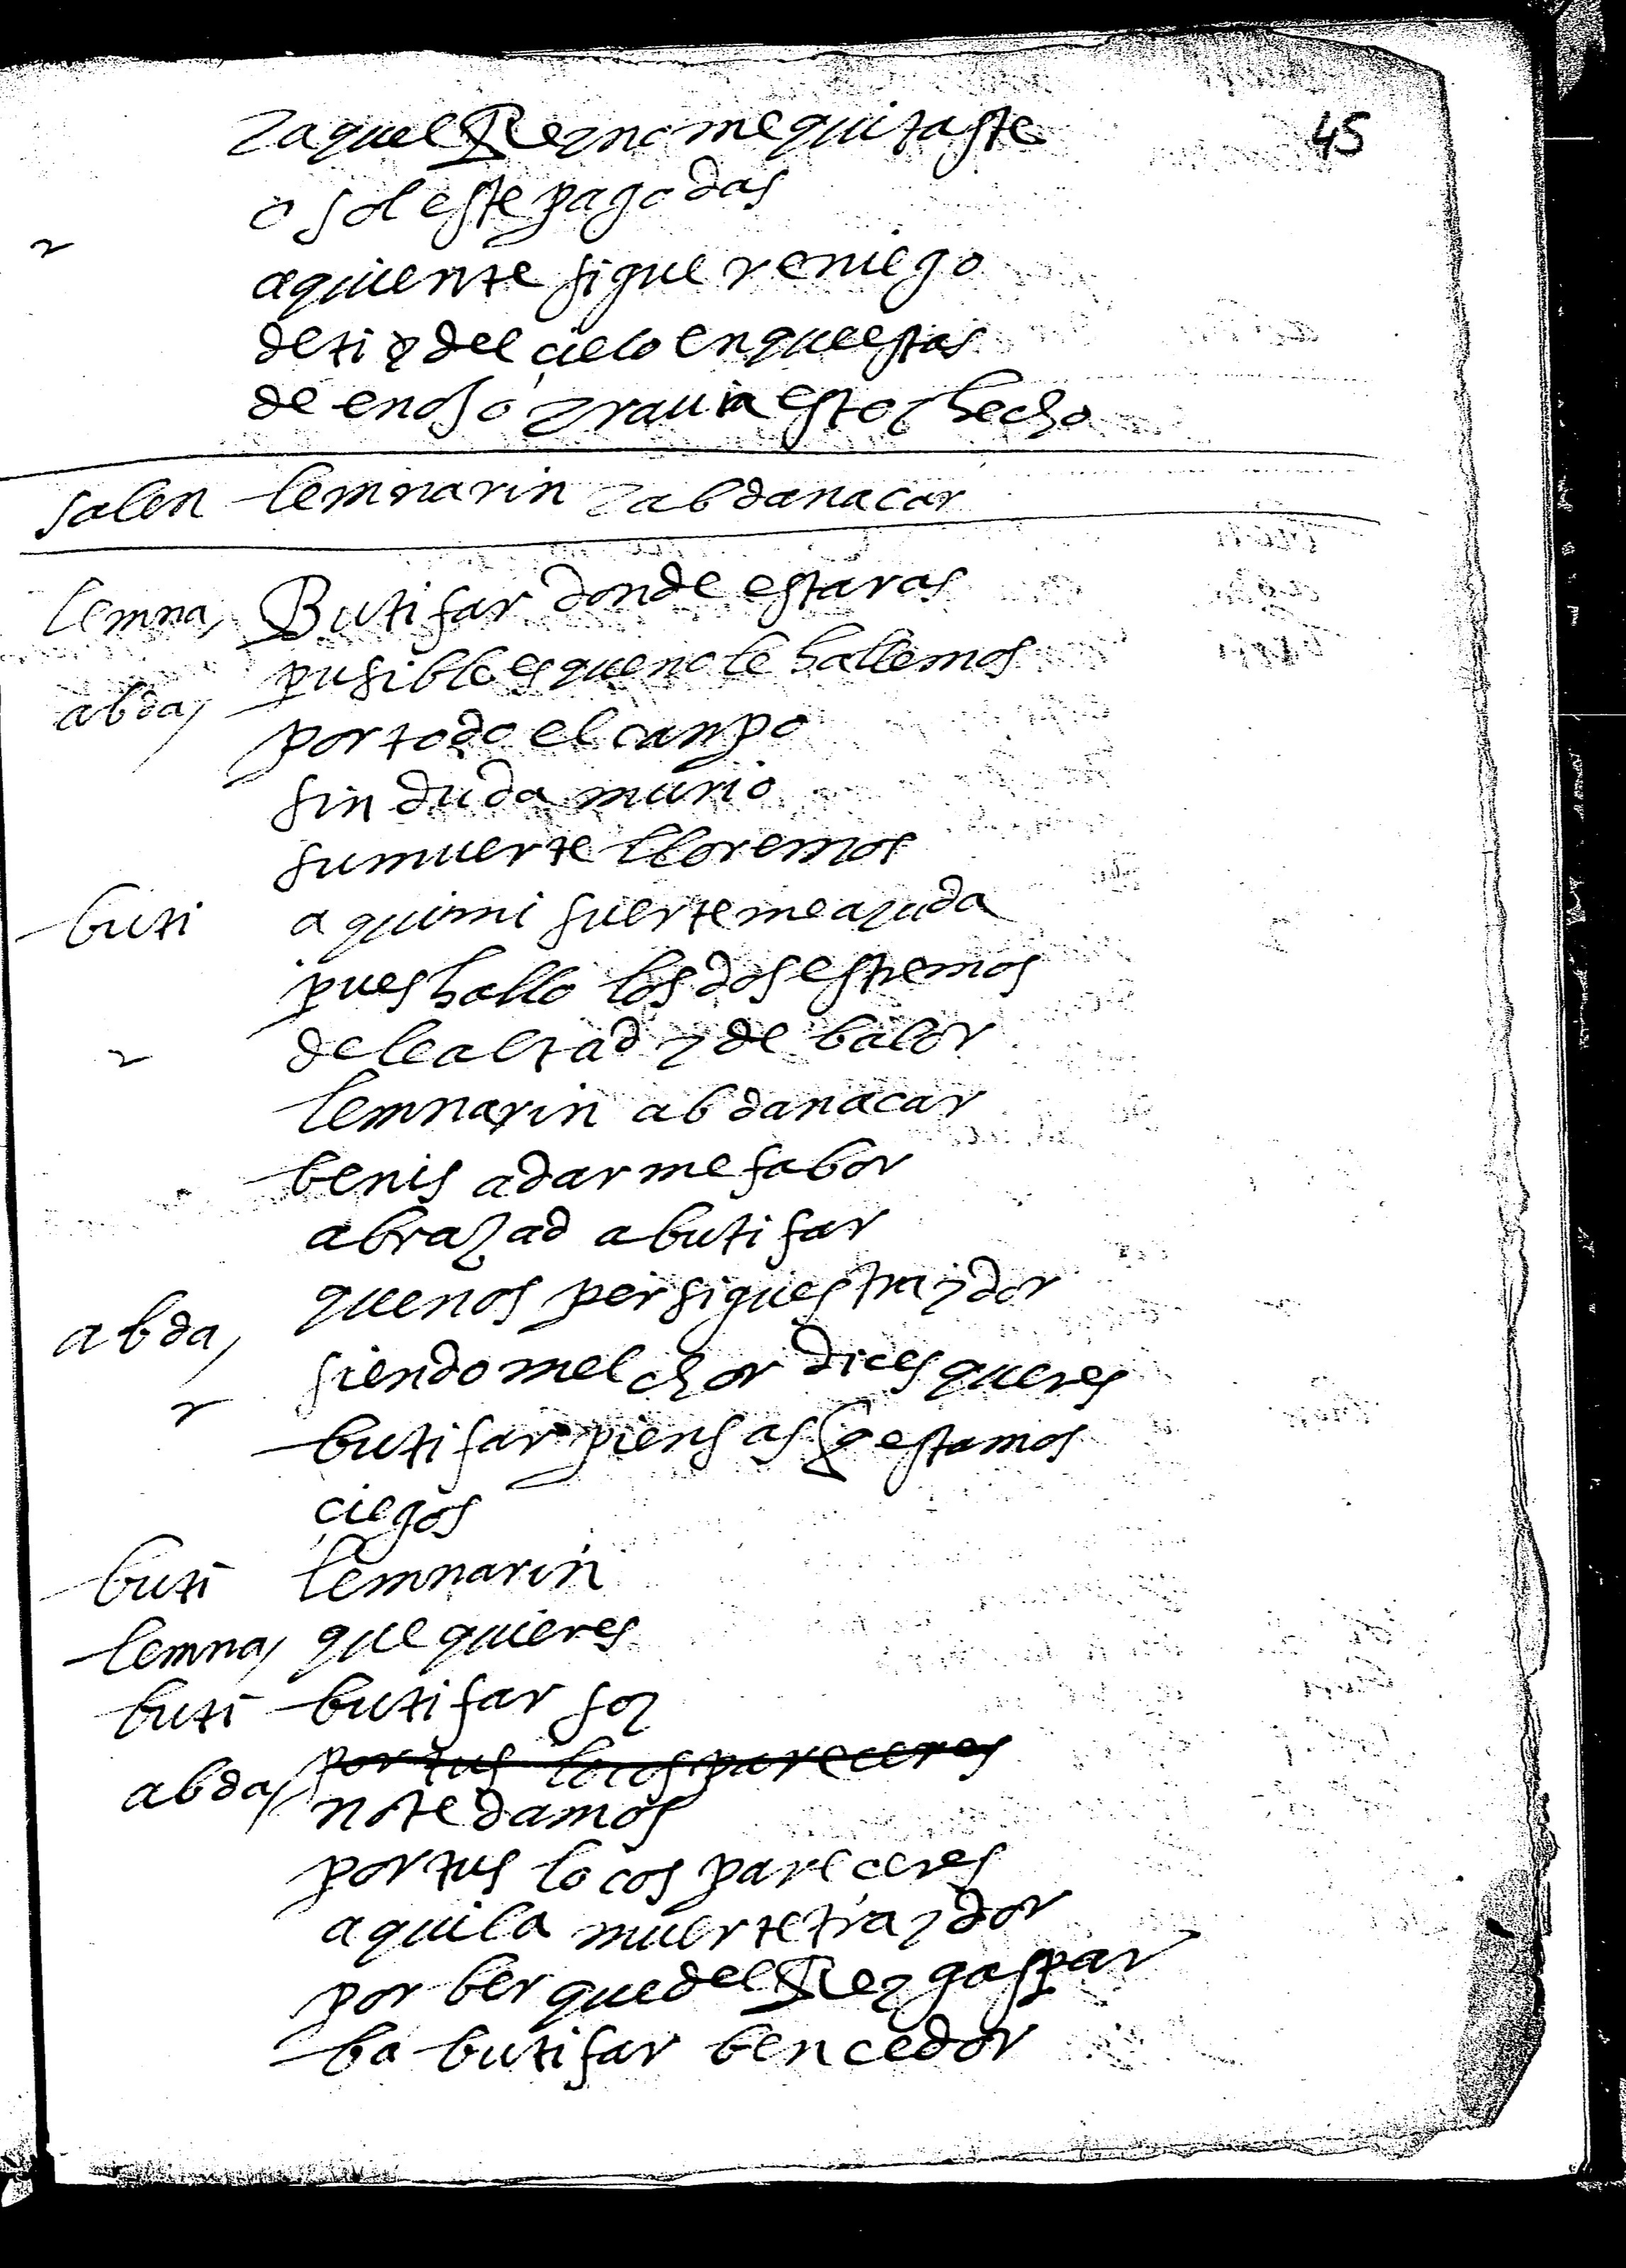 45
y aquel Reyno me quitaste
o sol este pago das
a quien te sigue reniego
de ti y del cielo en que estas
de enojo y rauia estoy hecho
salen lemnarin y abdanacar
lemna, Butifar donde estaras
abda, pusible es que no le hallemos
por todo el canpo
sin duda murio
su muerte lloremos
buti aqui mi suerte me ayuda
pues hallo los dos estremos
de lealtad y de balor
lemnarin abdanacar
benis a darme fabor
abrazad a butifar
abda, que nos persigues traydor
siendo melchor dices queres
butifar piensas q estamos
ciegos
buti lemnarin
lemna, que quieres
buti butifar soy
abda, por tus locos pareceres
no te damos
por tus locos pareceres
aqui la muerte traydor
por ber que del Rey gaspar
ba butifar bencedor